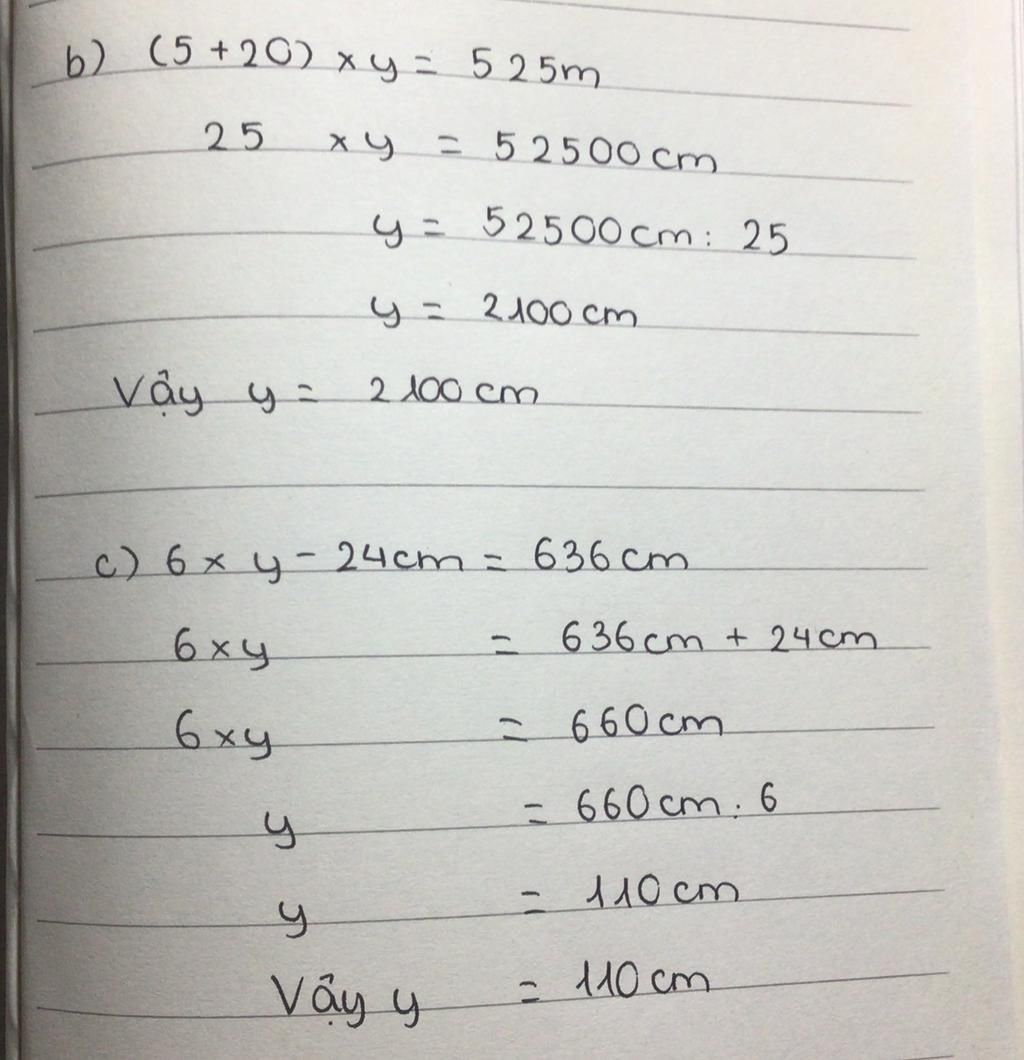 b) (5 + 20) x y = 525m
25 x y = 52500cm
y = 52500cm : 25
y = 2100cm
Vậy y = 2100cm
c) 6 x y - 24cm = 636cm
6 x y = 636cm + 24cm
6 x y = 660cm
y = 660cm : 6
y = 110cm
Vậy y = 110cm